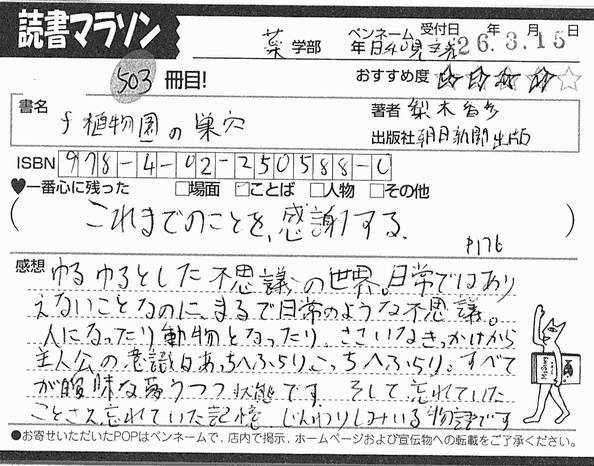 読書マラソン
薬 学部 ペンネーム 受付日 年 月 日
年 26.3.15
503 冊目! おすすめ度 ☆☆☆☆☆
書名 f植物園の巣穴 著者 梨木香歩
出版社 朝日新聞出版
ISBN 978-4-02-250588-0
♥一番心に残った □場面 ☑ことば □人物 □その他
(これまでのことを、感謝する。)
P176
感想 ゆるゆるとした不思議の世界。日常ではあり
えないことなのに、まるで日常のような不思議。
人になったり動物となったり、ささいなきっかけから
主人公の意識はあっちへふらり、こっちへふらり。すべて
が曖昧な夢うつつ状態です。そして忘れていた
ことさえ忘れていた記憶。じんわりしみいる物語です
●お寄せいただいたPOPはペンネームで、店内で掲示、ホームページおよび宣伝物への転載をご了承ください。